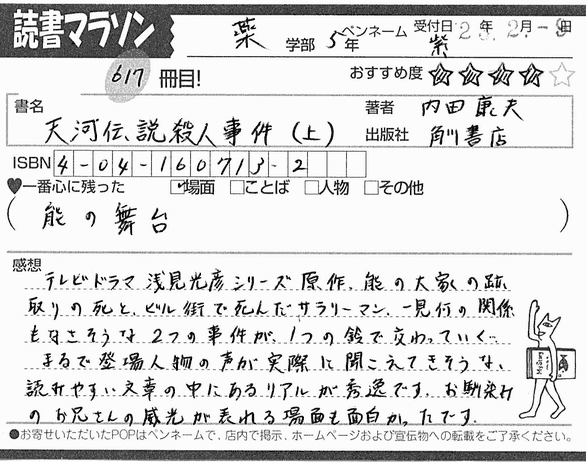 読書マラソン
薬 学部 5年 ペンネーム 紫 受付日 23年 2月-9日
617 冊目! おすすめ度 ★★★★☆
書名 天河伝説殺人事件(上)
著者 内田康夫
出版社 角川書店
ISBN 4-04-160713-2
♥一番心に残った ☑場面 □ことば □人物 □その他
(能の舞台)
感想
テレビドラマ浅見光彦シリーズ原作。能の大家の跡
取りの死と、ビル街で死んだサラリーマン。一見何の関係
もなさそうな2つの事件が、1つの鈴で交わっていく…
まるで登場人物の声が実際に聞こえてきそうな、
読みやすい文章の中にあるリアルが秀逸です。お馴染み
のお兄さんの威光が表れる場面も面白かったです。
●お寄せいただいたPOPはペンネームで、店内で掲示、ホームページおよび宣伝物への転載をご了承ください。